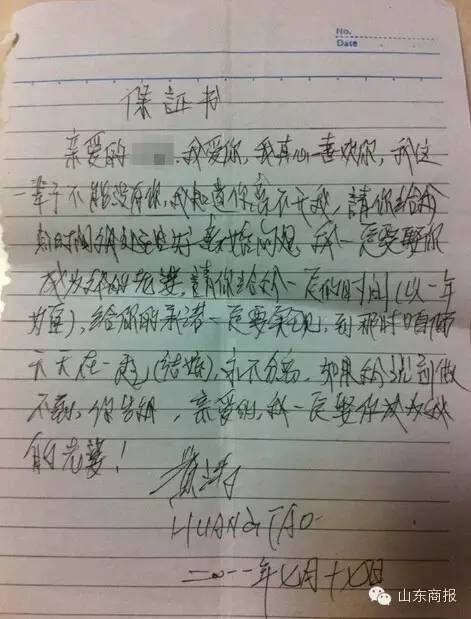 No.
Date
保証书
亲爱的 我爱你,我真心喜欢你,我这
一辈子不能没有你,我知道你离不开我,請你给我
时间 处 好 婚 问题,我一定要娶你
成为我的老婆,請你给我一定的时间(以一年
为
),给你的承诺一定要实现,到那时咱俩
天天在一起(结婚),永不分离,如果我说到做
不到,你告 ,亲爱的,我一定娶你成为我
的老婆!
黄涛
HUANG TAO
二〇一一年七月十七日
山东商报